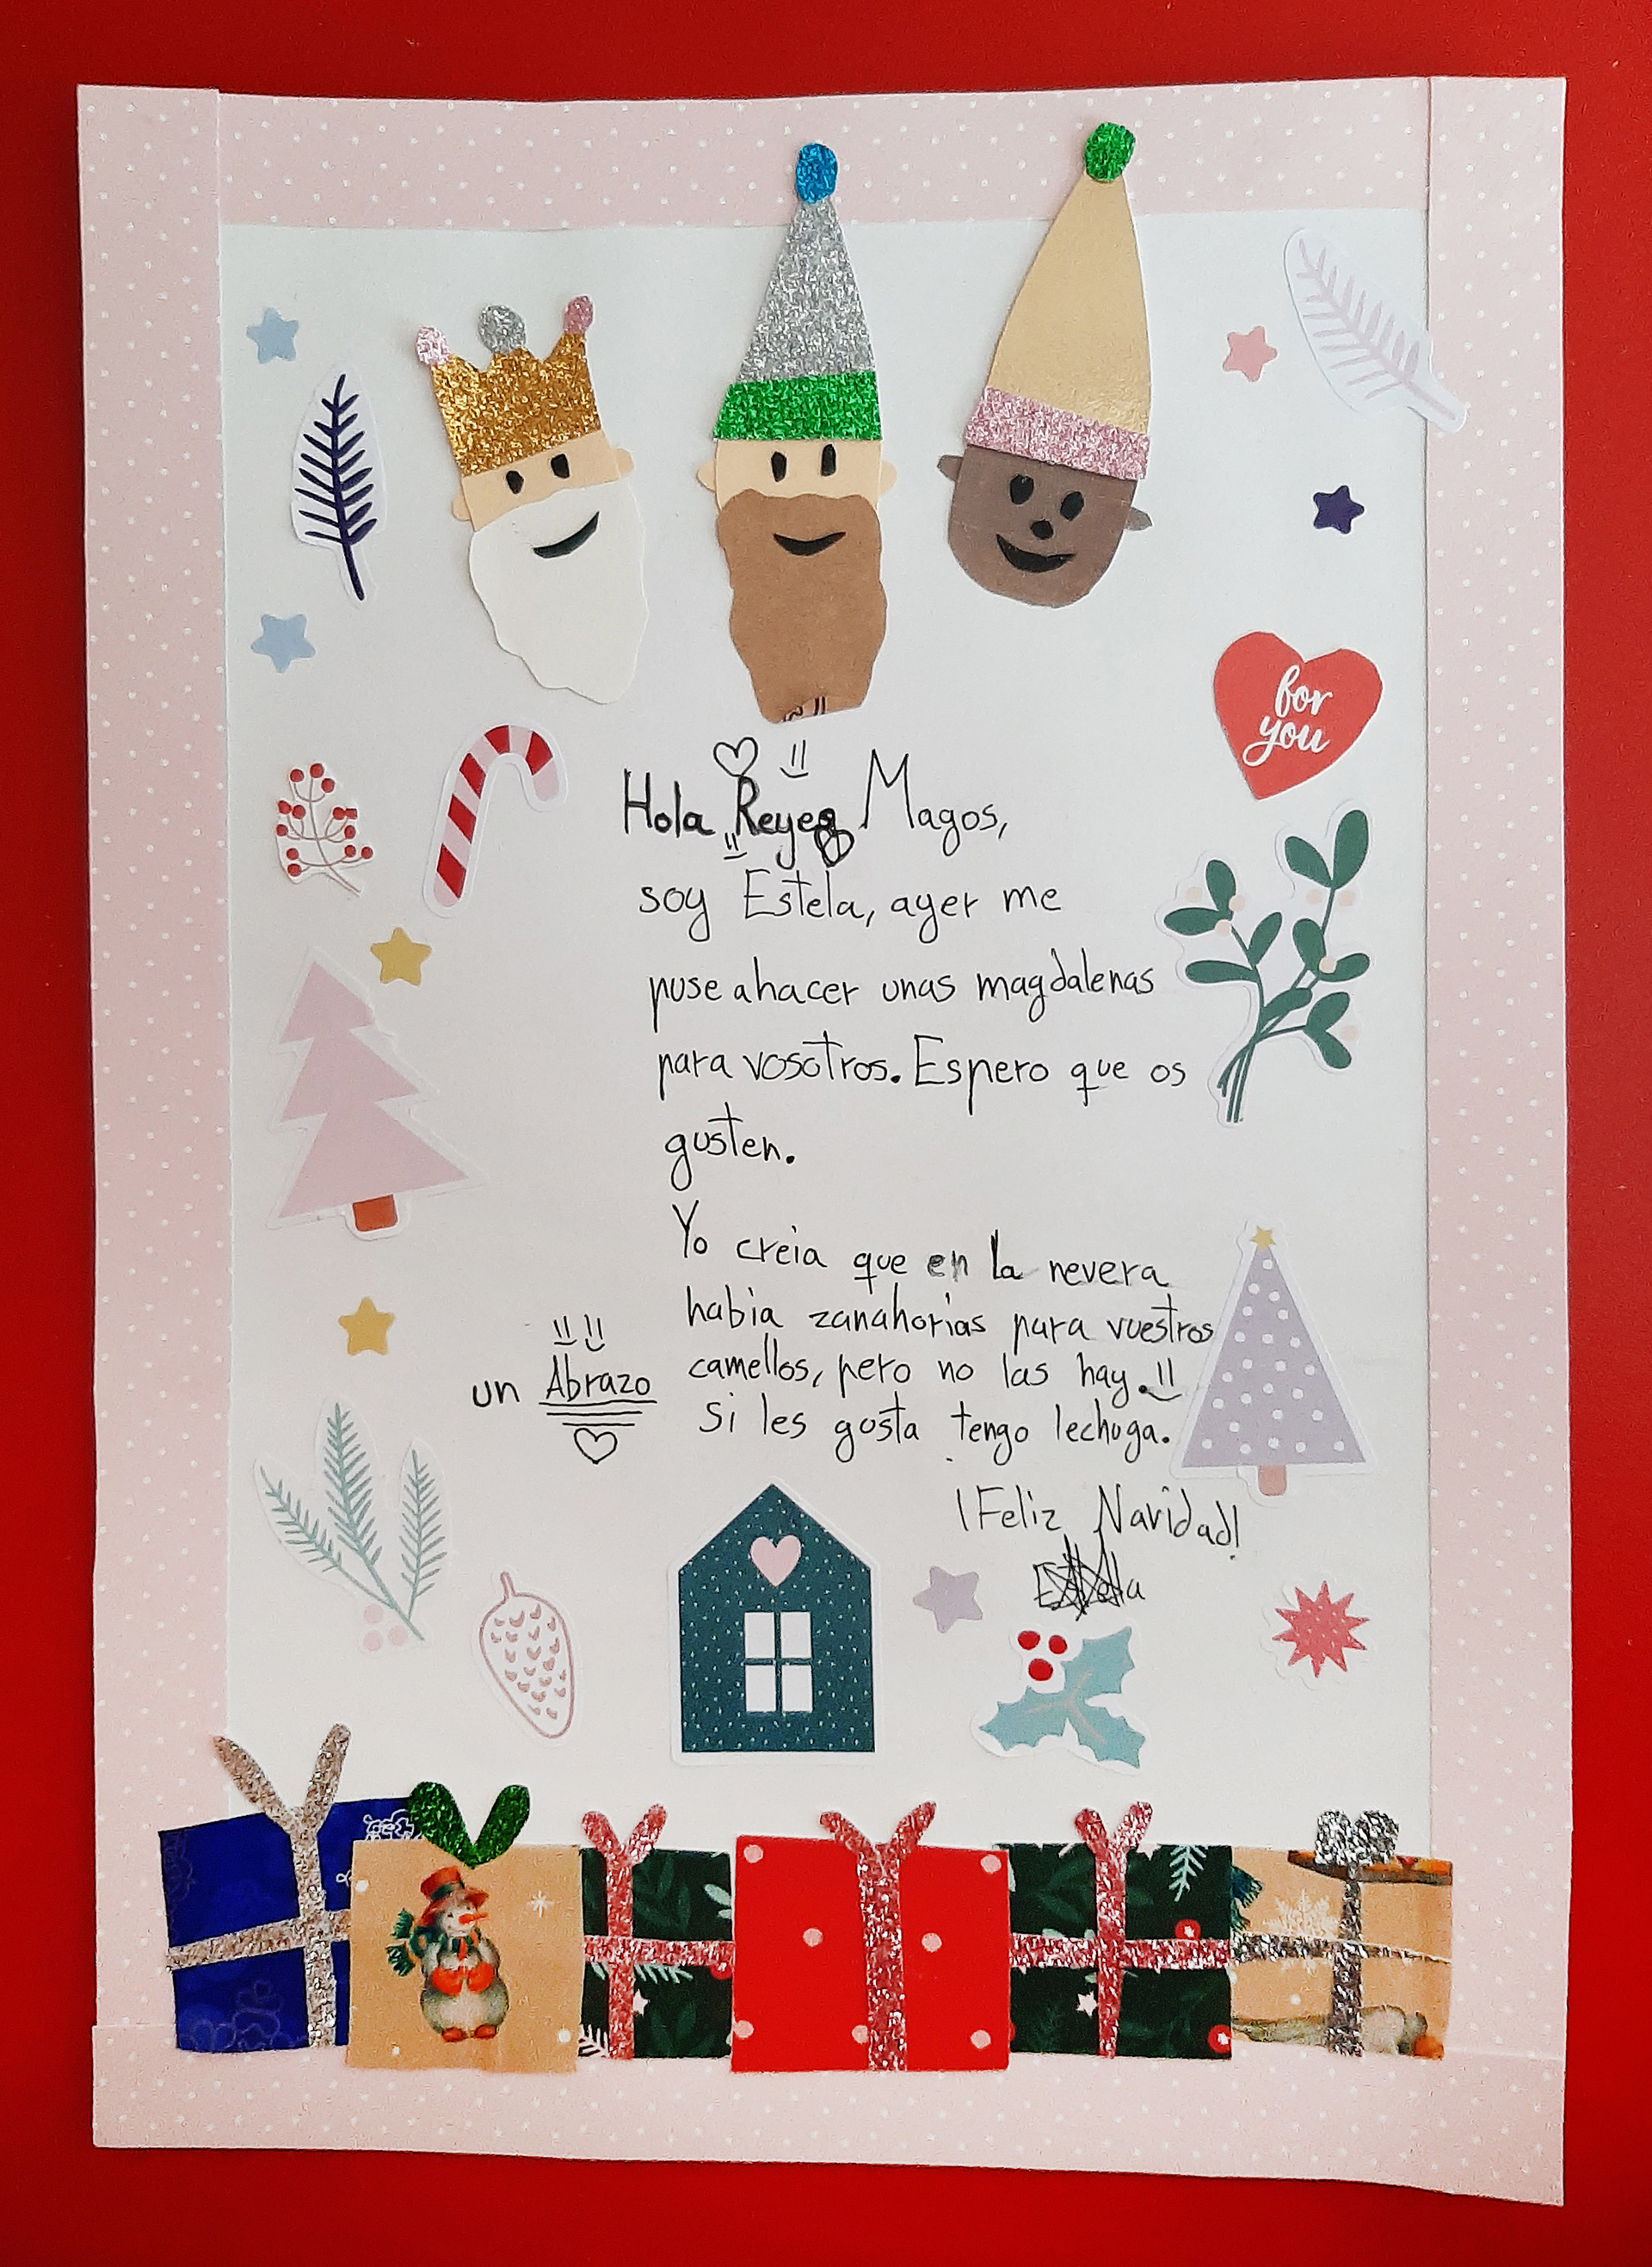 for
you
Hola Reyes Magos,
soy Estela, ayer me
puse ahacer unas magdalenas
para vosotros. Espero que os
gusten.
Yo creia que en la nevera
habia zanahorias para vuestros
camellos, pero no las hay.
Si les gusta tengo lechuga.
un Abrazo
¡Feliz Navidad!